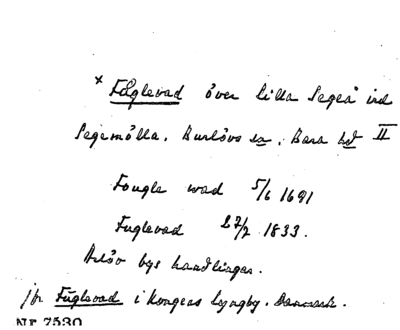 × Fuglevad över lilla Segeå vid
Segemölla. Burlövs sn. Bara hd II
Fougle wad 5/6 1691
Fuglevad 27/2 1833.
Arlöv bys handlingar.
jfr Fuglevad i Kongens Lyngby. Danmark.
Nr 7530